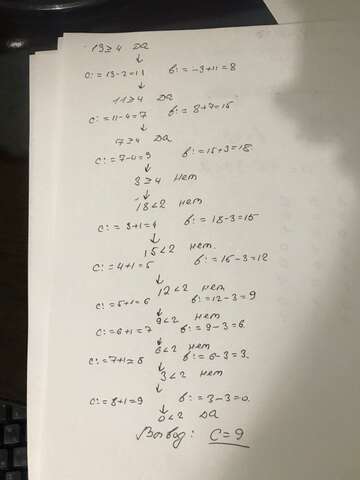 19≥4 Да
↓
c:=13-2=11 в:=-3+11=8
↓
11≥4 Да
c:=11-4=7 в:=8+7=15
↓
7≥4 Да
c:=7-4=3 в:=15+3=18
↓
3≥4 нет
↓
18<2 нет
c:=3+1=4 в:=18-3=15
↓
15<2 нет.
c:=4+1=5 в:=15-3=12
↓
12<2 нет
c:=5+1=6 в:=12-3=9
↓
9<2 нет
c:=6+1=7 в:=9-3=6
↓
6<2 нет
c:=7+1=8 в:=6-3=3.
↓
3<2 нет
↓
c:=8+1=9 в:=3-3=0.
↓
0<2 Да
Вывод: c=9